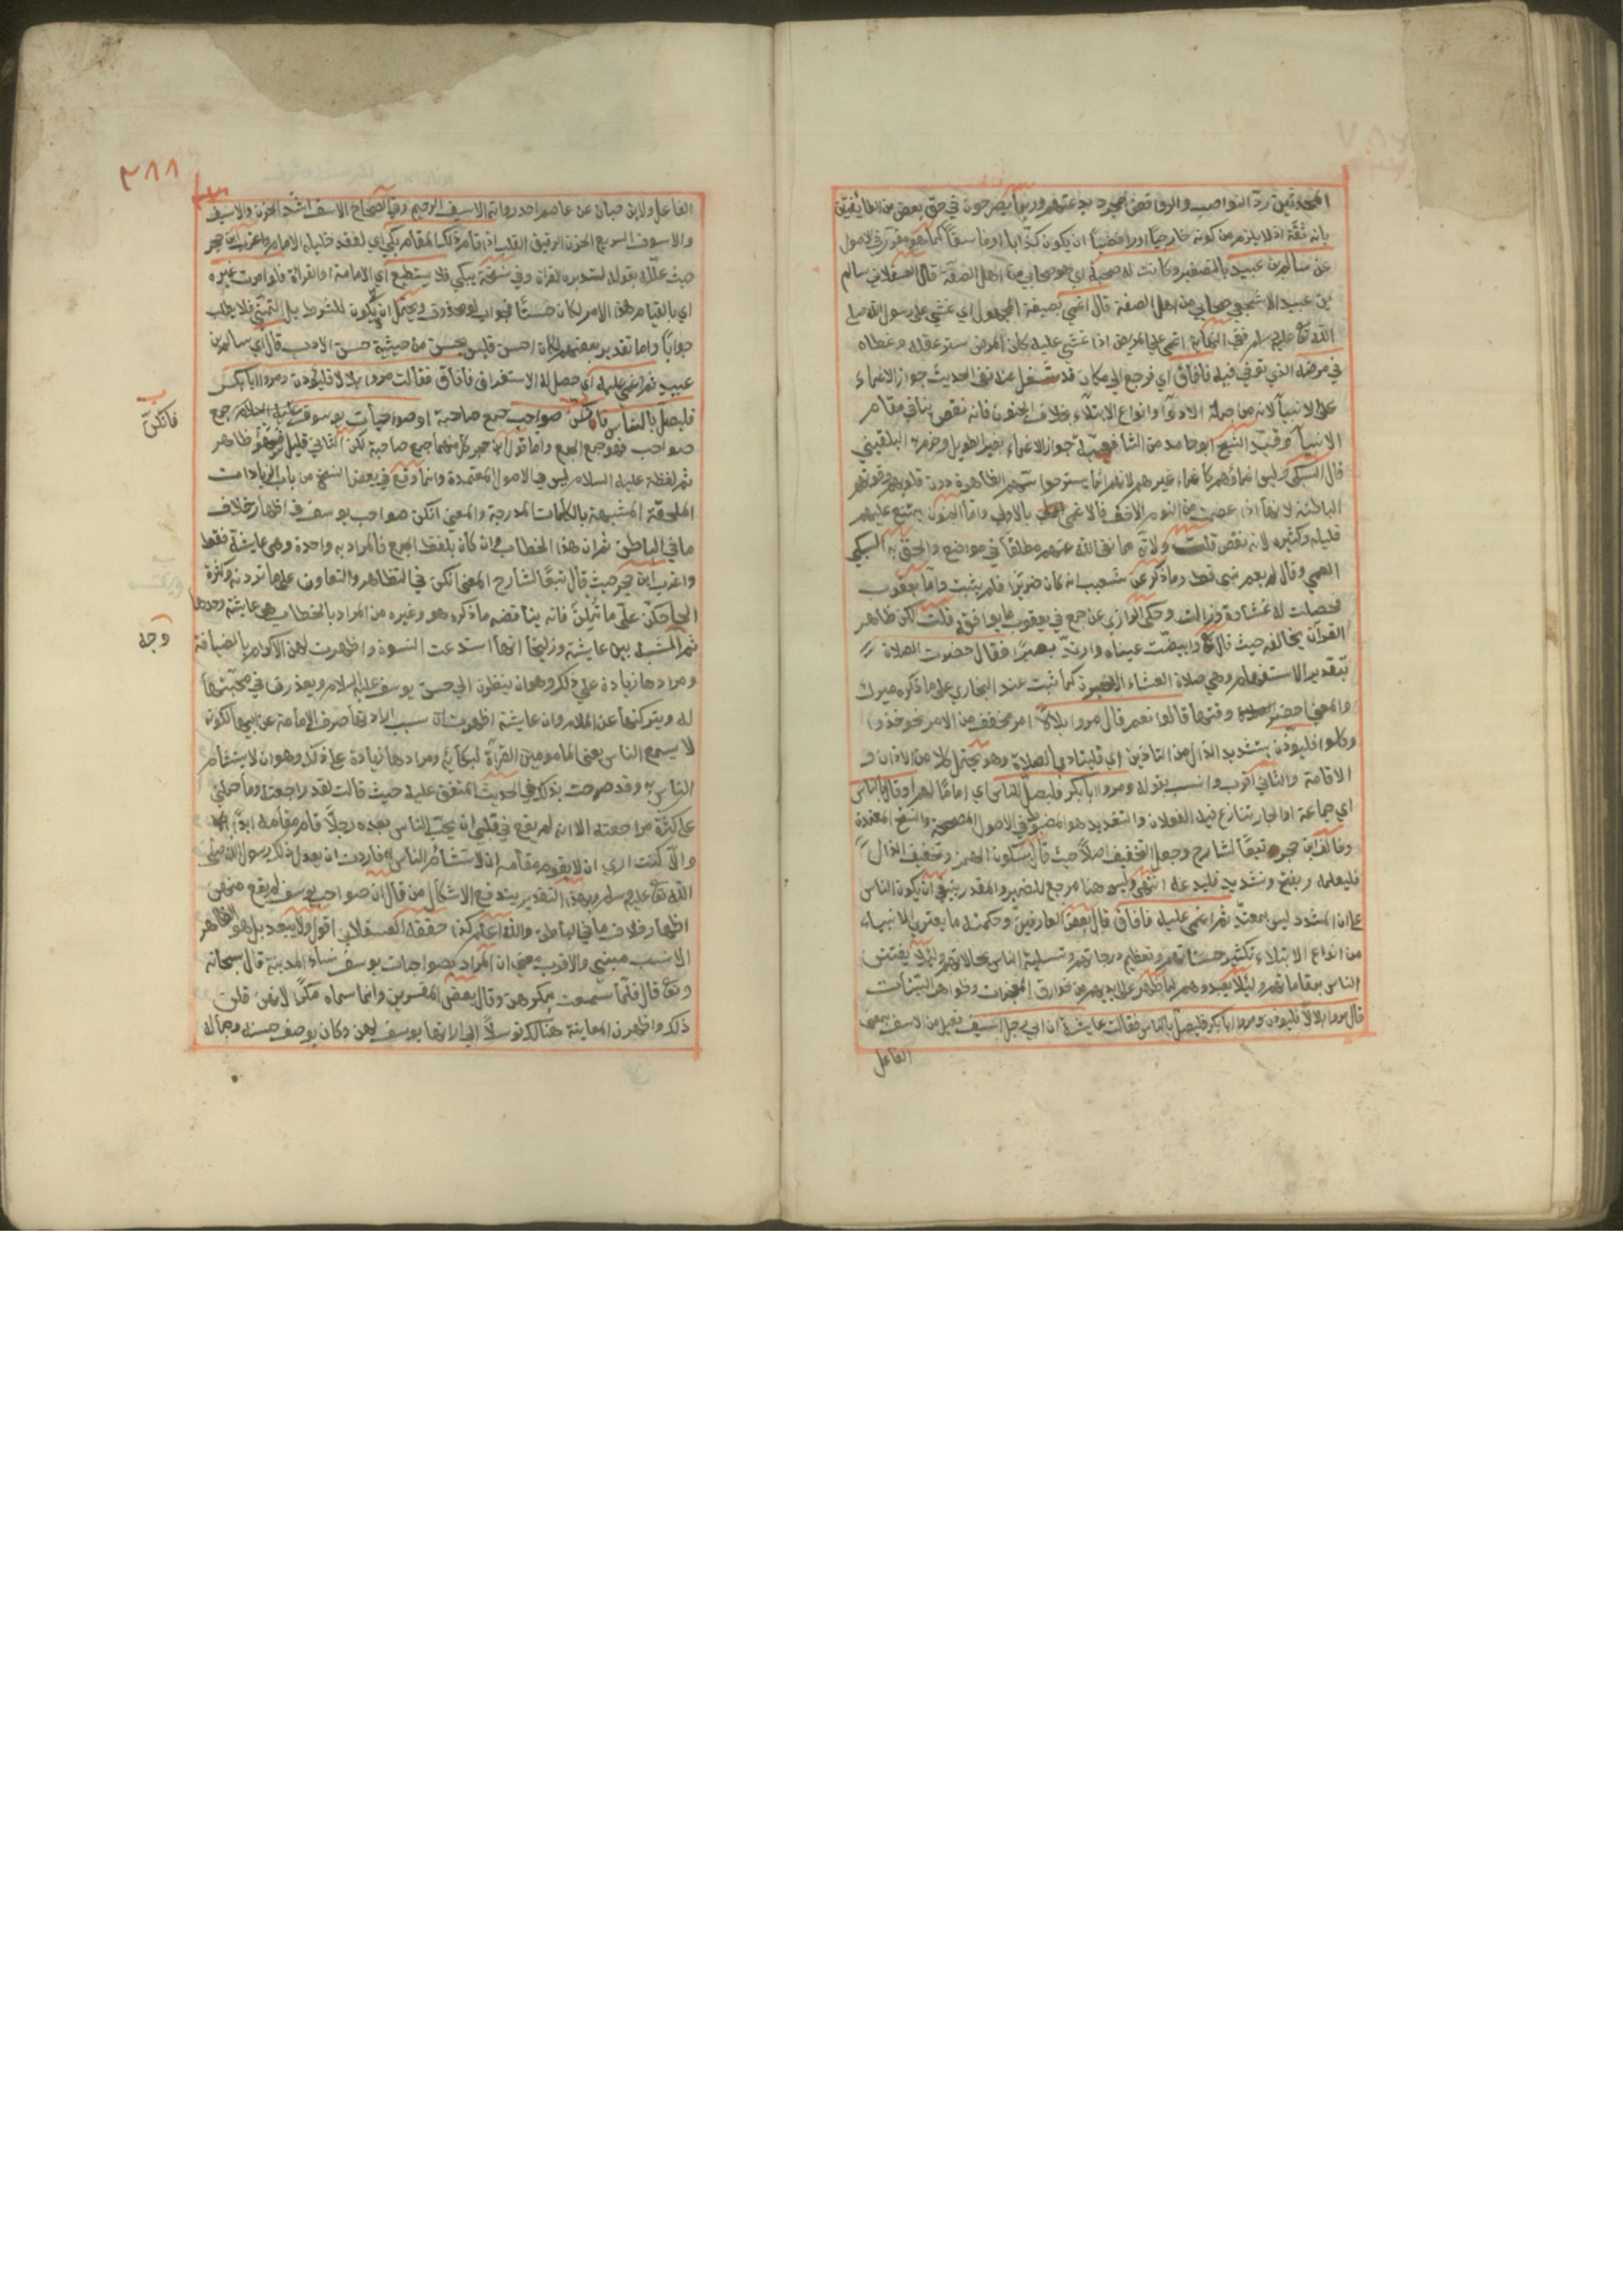 المحدثين رد النواصب والروافض لمجرد بدعتهم وربما يصرحون في حق بعض من الطائفتين
بانه ثقة اذ لا يلزم من كونه خارجيا او رافضيا ان يكون كذابا او فاسقا كما هو مقرر في الاصول
عن سالم بن عبيد بالتصغير وكانت له صحبة اي هو صحابي من اهل الصفة قال العسقلاني سالم
بن عبيد الاشجعي صحابي من اهل الصفة قال اغمي بصيغة المجهول اي غشي على رسول الله صلى
الله تع عليه وسلم ففي النهاية اغمي على المريض اذا غشي عليه كان المرض ستر عقله وغطاه
في مرضه الذي توفي فيه فافاق اي فرجع الى ما كان قد شغل عنه ففي الحديث جواز الاغماء
على الانبيآ لانه من جملة الادوآ وانواع الابتلآء بخلاف الجنون فانه نقص ينافي مقام
الانبيآ وقيد الشيخ ابو حامد من الشافعية جواز الاغماء بغير الطويل وجزم به البلقيني
قال السبكي ليس اغماؤهم كاغماء غيرهم لانه انما يستر حواسهم الظاهرة دون قلوبهم وقوتهم
الباطنة لانها اذا عصمت من النوم الاخف فالاغمآ بالاولى واما الجنون يمتنع عليهم
قليله وكثيره لانه نقص قلت ولانه مما نفى الله عنهم مطلقا في مواضع والحق به السبكي
العمي وقال لم يعم نبي قط وما ذكر عن شعيب انه كان ضريرا فلم يثبت واما يعقوب
فحصلت له غشاوة وزالت وحكى الرازي عن جمع في يعقوب ما يوافقه قلت لكن ظاهر
القرآن يخالفه حيث قال تع وابيضت عيناه وارتد بصيرا فقال حضرت الصلاة
بتقدير الاستفهام وهي صلاة العشاء الاخيرة كما ثبت عند البخاري على ما ذكره ميرك
والمعنى احضر وقتها قالوا نعم قال مروا بلالا امر مخفف من الامر نحو خذوا
وكلوا فليؤذن بتشديد الذال من التاذين اي فليناد بالصلاة وهو يحتمل كلا من الاذان و
الاقامة والثاني اقرب وانسب بقوله ومروا ابا بكر فليصل للناس اي اماما لهم او قال بالناس
اي جماعة او الجار تنازع فيه الفعلان والتشديد هو المضبوط في الاصول المصححة والنسخ المعتمدة
وخالف ابن حجر تبعا لشارح وجعل التخفيف اصلا حيث قال بسكون الهمزة وتخفيف الذال
فليعلمه وبفتح وتشديد فليدعه انتهى وليس هنا مرجع للضمير والمقدر ينبغي ان يكون الناس
على ان المشدد ليس بمتعد ثم اغمي عليه فافاق قال بعض العارفين وحكمته ما يعتري الانبياء
من انواع الابتلاء تكثير حسناتهم وتعظيم درجاتهم وتسلية الناس بحالاتهم ولئلا يفتتن
الناس بمقاماتهم ولئلا يعبدوهم لما ظهر على ايديهم من خوارق المعجزات وظواهر البينات
قال مروا بلالا فليؤذن ومروا ابا بكر فليصل بالناس فقالت عايشة ان ابي رجل اسيف فعيل من الاسف بمعنى
الفاعل
٣٨٨
الفاعل ولابن حبان عن عاصم احد رواته الاسيف الرحيم وفي الصحاح الاسف اشد الحزن والاسيف
والاسوف السريع الحزن الرقيق القلب اذا قام ذلك المقام بكى اي لفقد خليله الامام واغرب ابن حجر
حيث علله بقوله لتدبره القرآن وفي نسخة يبكي فلا يستطيع اي الامامة او القرأة فلو امرت غيره
اي بالقيام بهذا الامر لكان حسنا فجواب لو محذوف ويحتمل ان يكون للشرط بل للتمني فلا يطلب
جوابا واما تقدير بعضهم لكان احسن فليس بحسن من حيثية حسن الادب قال اي سالم بن
عبيد ثم اغمي عليه اي حصل له الاستغراق فافاق فقالت مروا بلالا فليؤذن ومروا ابا بكر
فليصل بالناس صواحب جمع صاحبة او صواحبات يوسوف عليه السلام جمع
صواحب فهو جمع الجمع واما قول ابن حجر كل منهما جمع صاحبة لكن الثاني قليل فهو ظاهر
ثم لفظة عليه السلام ليس في الاصول المعتمدة وانما وقع في بعض النسخ من باب الزيادات
الملحقة المشبهة بالكلمات المدرجة والمعنى انكن صواحب يوسف في اظهار خلاف
ما في الباطن ثم ان هذا الخطاب وان كان بلفظ الجمع فالمراد به واحدة وهي عايشة فقط
واغرب ابن حجر حيث قال تبعا لشارح المعنى انكن في التظاهر والتعاون على ما تردنه وكثرة
الحاحكن على ما تملن فانه يناقضه ما ذكره هو وغيره من المراد بالخطاب هي عايشة وحدها
ثم الشبه بين عايشة وزليخا انها استدعت النسوة واظهرت لهن الاكرام بالضيافة
ومرادها زيادة على ذلك وهو ان ينظرن الى حسن يوسف عليه السلام ويعذرنها في محبتها
له ويتركنها عن الملام وان عايشة اظهرت ان سبب ارادتها صرف الامامة عن ابيها لكونه
لا يسمع الناس يعنى المامومين القرآة لبكائه ومرادها زيادة على ذلك وهو ان لا يتشأم
الناس به وقد صرحت بذلك في الحديث المتفق عليه حيث قالت لقد راجعته وما حملني
على كثرة مراجعته الا انه لم يقع في قلبي ان يحب الناس بعده رجلا قام مقامه ابدا
والا كنت ارى ان لا يقوم مقامه احد الا تشأم الناس به فاردت ان يعدل ذلك رسول الله صلى
الله تع عليه وسلم وبهذا التقدير يندفع الاشكال من قال ان صواحب يوسف لم يقع منهن
اظهار خلاف ما في الباطن والله اعلم كذا حققه العسقلاني اقول ولا يبعد بل هو الظاهر
الانسب مبنى والاقرب معنى ان المراد بصواحبات يوسف نساء المدينة قال سبحانه
وتع قال فلما سمعت بمكرهن وقال بعض المفسرين وانما سماه مكرا لانهن قلن
ذلك واظهرن المعاينة هنالك توسلا الى اراتها يوسف لهن وكان يوصف حسنه وجماله
فانكن
وجه